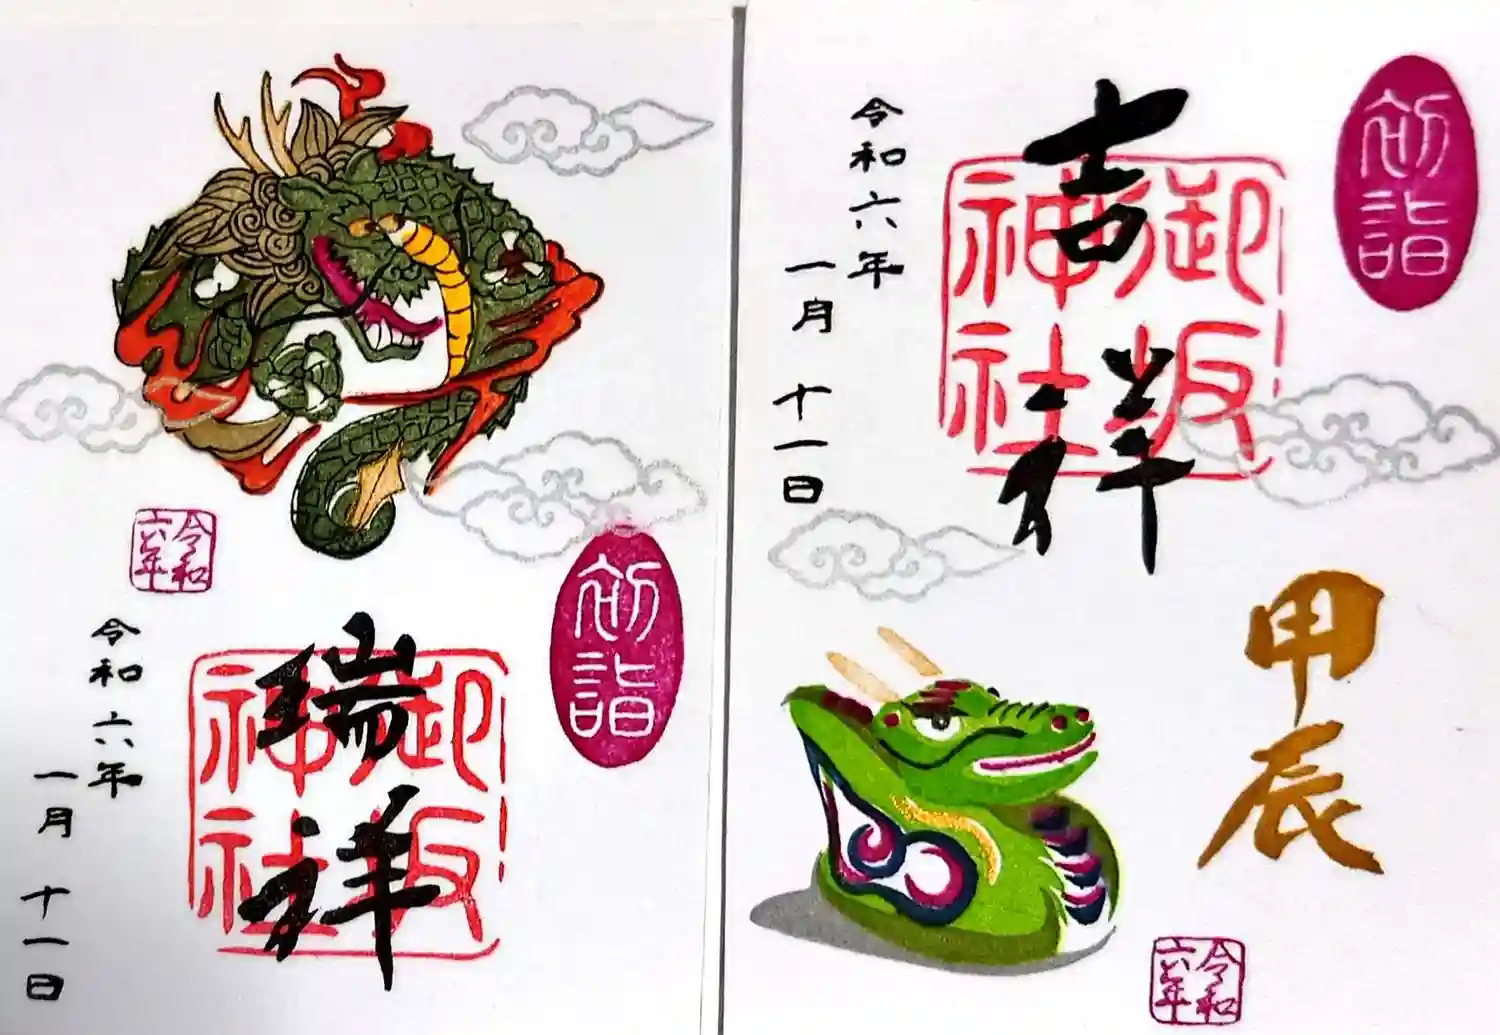 初詣
瑞祥
御坂
神社
令和
六年
令和六年
一月十一日
初詣
吉祥
御坂
神社
令和六年
一月十一日
甲辰
令和
六年